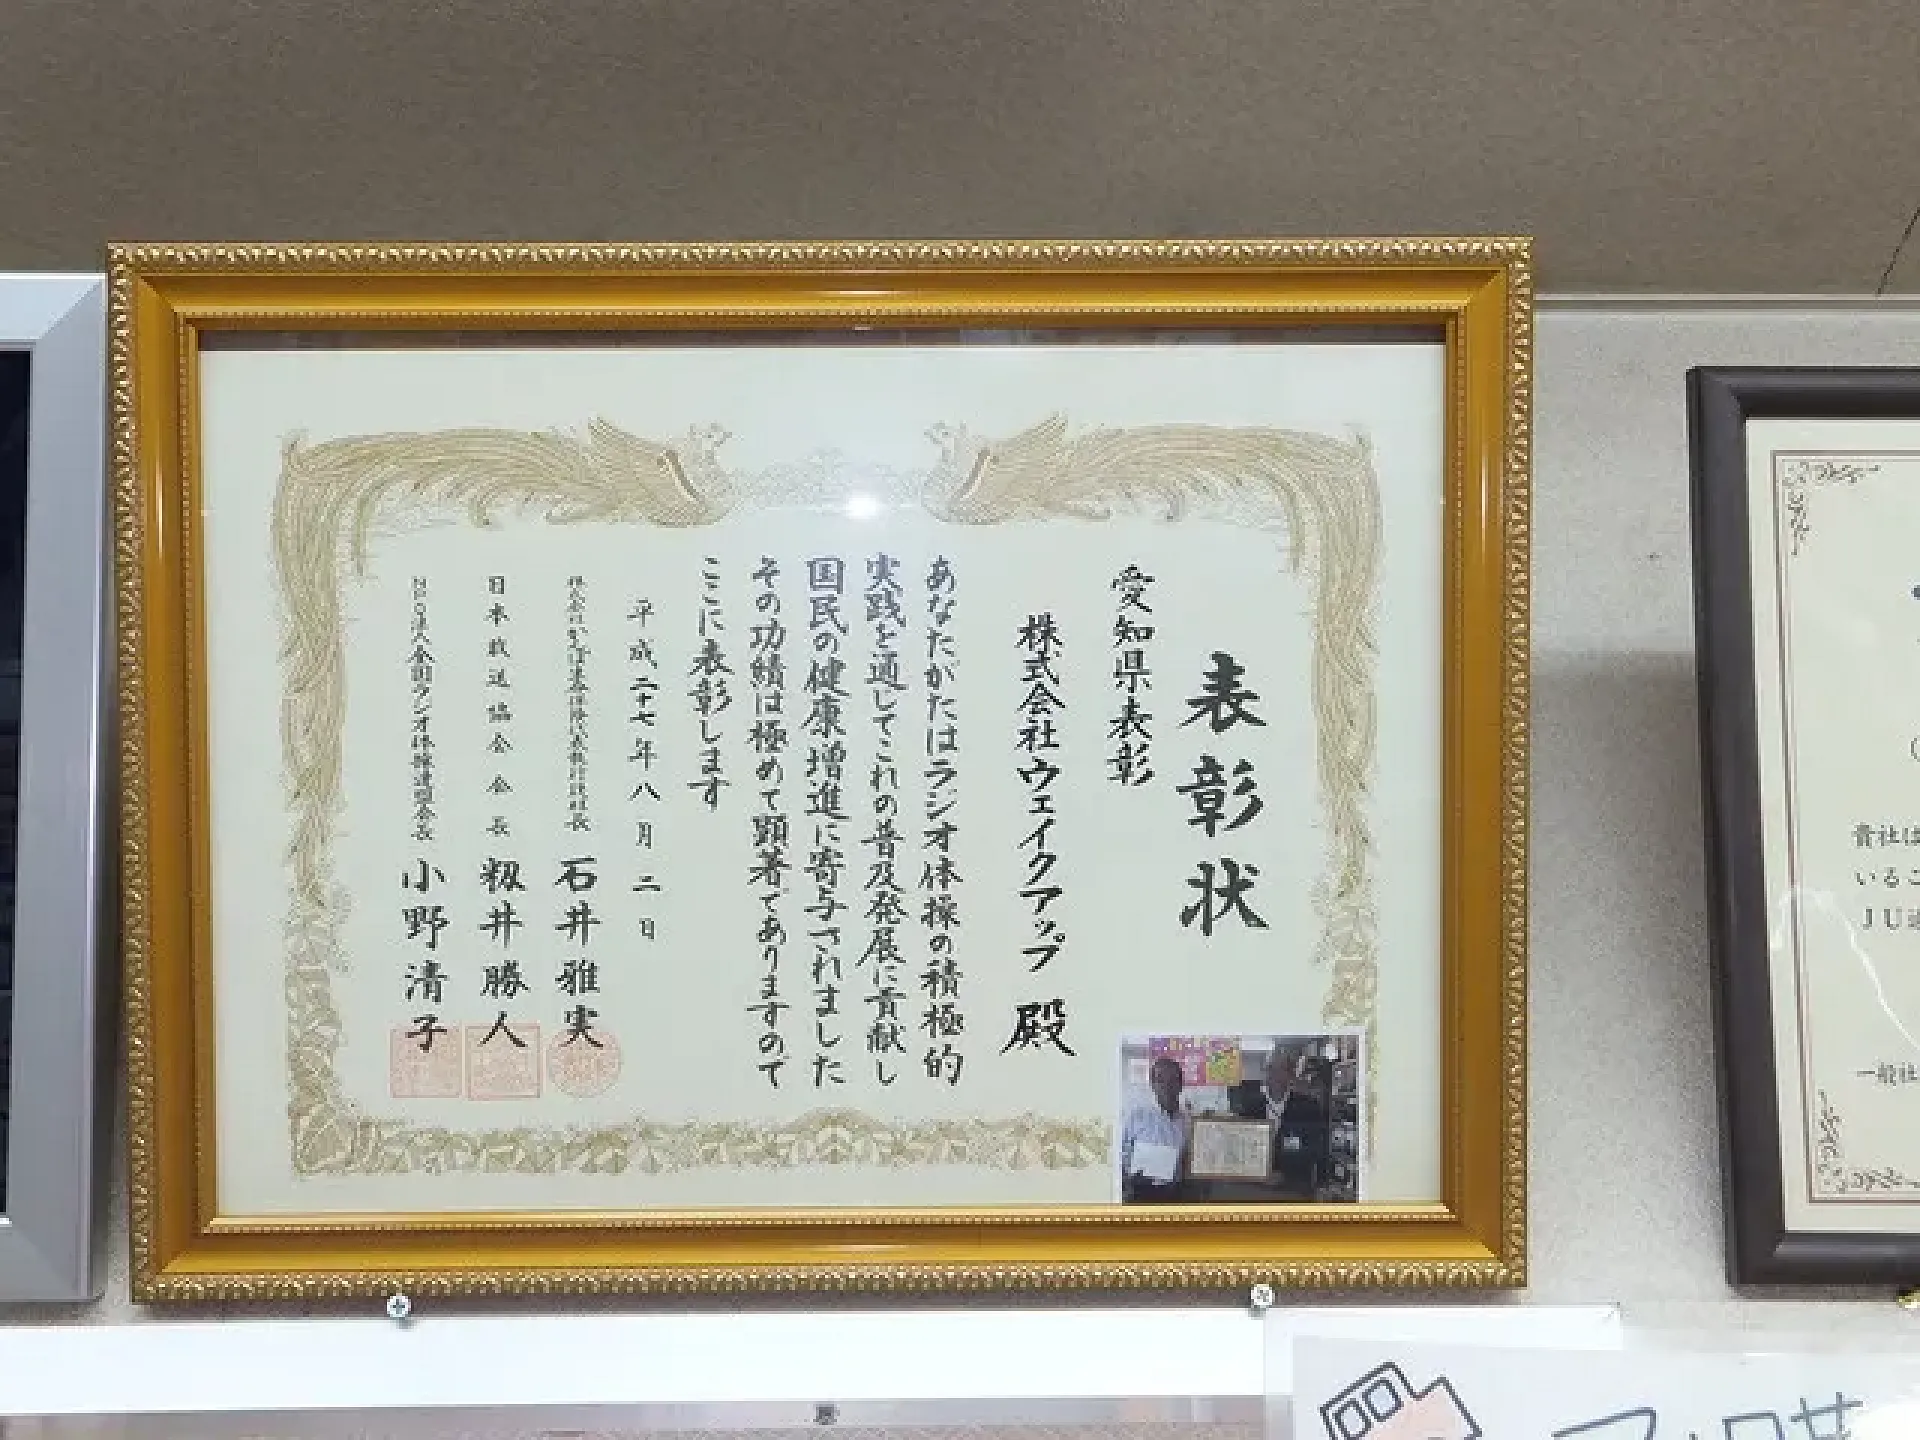 表彰状
愛知県表彰
株式会社ウェイクアップ 殿
あなたがたはラジオ体操の積極的
実践を通してこれの普及発展に貢献し
国民の健康増進に寄与されました
その功績は極めて顕著でありますので
ここに表彰します
平成二十七年八月二日
株式会社かんぽ生命保険代表執行役社長 石井雅実
日本放送協会会長 籾井勝人
NPO法人全国ラジオ体操連盟会長 小野清子
貴社は
いるこ
JU
一般社